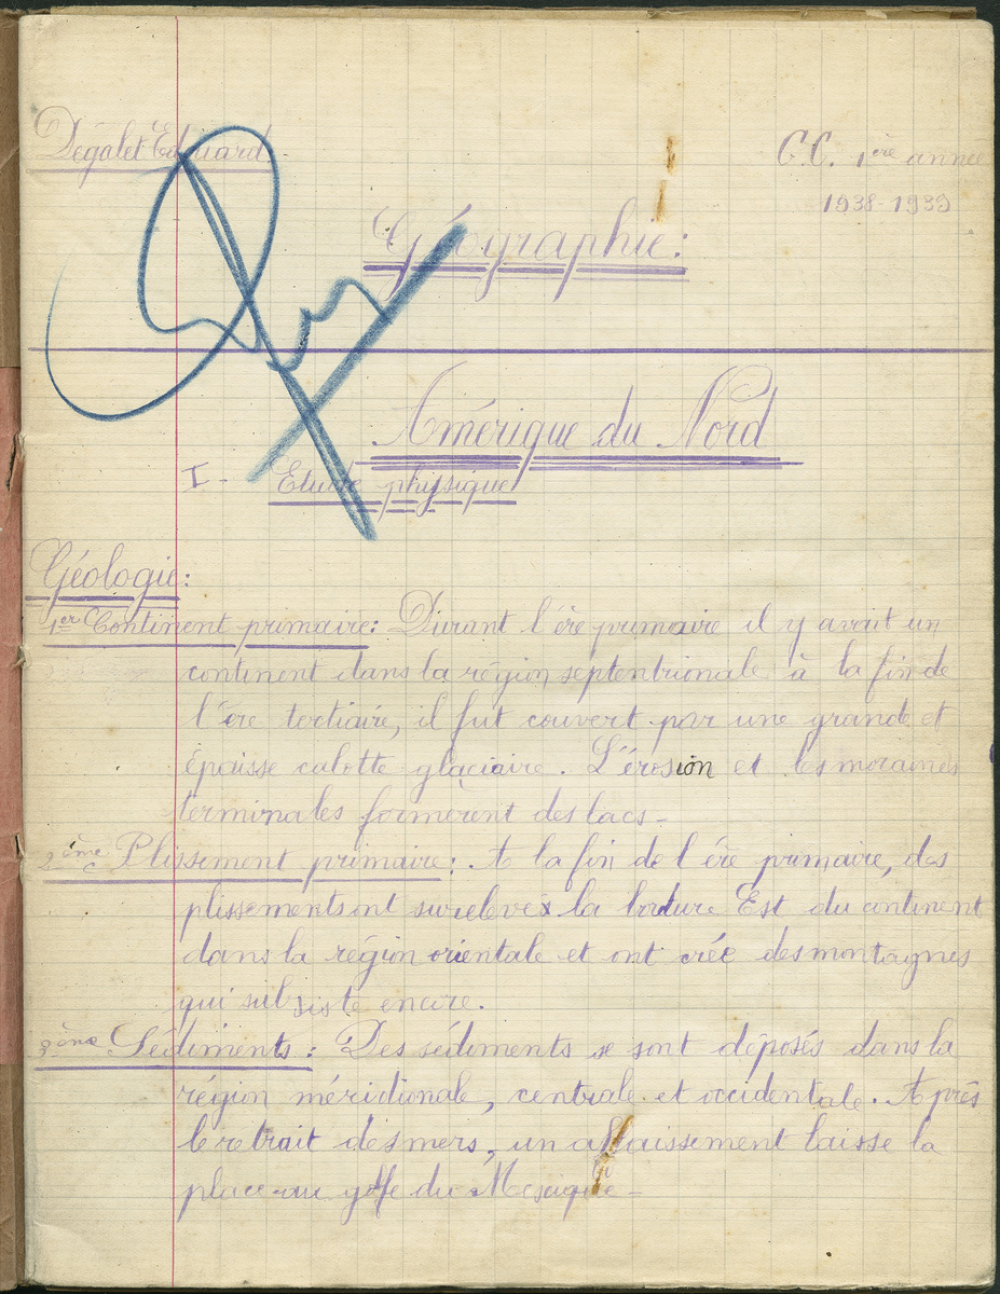 Dégalet Edouard
C.C. 1ère année
1938-1939
Géographie:
Amérique du Nord
I- Etude physique
Géologie:
1er Continent primaire: Durant l'ère primaire il y avait un
continent dans la région septentrionale à la fin de
l'ère tertiaire, il fut couvert par une grande et
épaisse calotte glaciaire. L'érosion et les moraines
terminales formèrent des lacs-
2ème Plissement primaire: A la fin de l'ère primaire, des
plissements ont surelevé la bordure Est du continent
dans la région orientale et ont crée des montagnes
qui subsiste encore.
3ème Sédiments: Des sédiments se sont déposés dans la
région méridionale, centrale et occidentale. Après
le retrait des mers, un affaissement laisse la
place au golfe du Mexique-